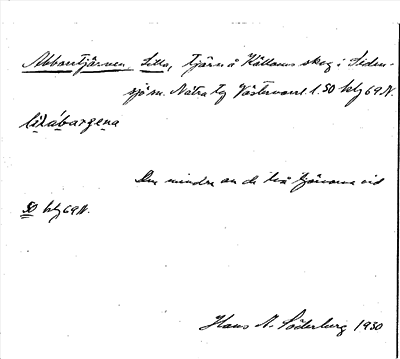 Abborrtjärnen, Lilla, tjärn å Källoms skog i Siden-
sjö sn. Nätra tg Västernorrl. l. 50 kbl 69 N.
lilábargena
Den mindre av de två tjärnarna vid
50 kbl 69 N.
Hans N. Söderberg 1930